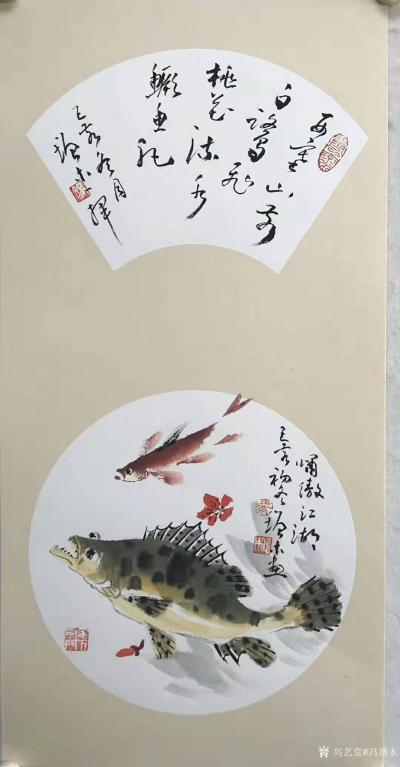 西塞山前
白鹭飞
桃花流水
鳜鱼肥
己亥冬月
增木
啸傲江湖
己亥初冬增木画
兴艺堂@冯增木